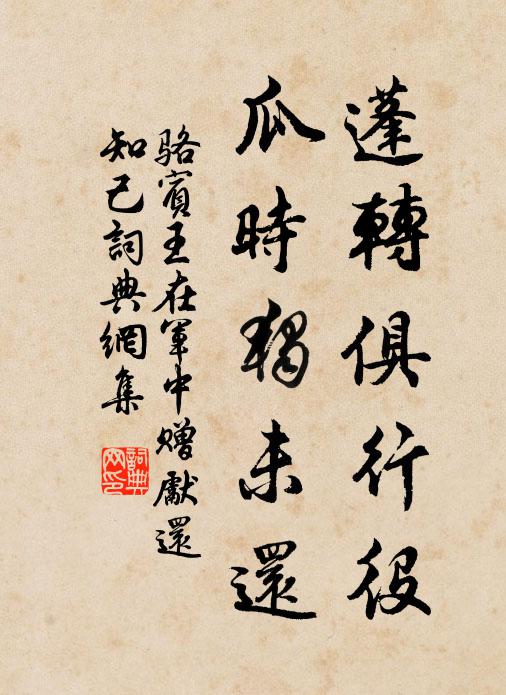 蓬轉俱行役
瓜時獨未還
駱賓王在軍中贈獻還
知己詞典網集
詞典網印